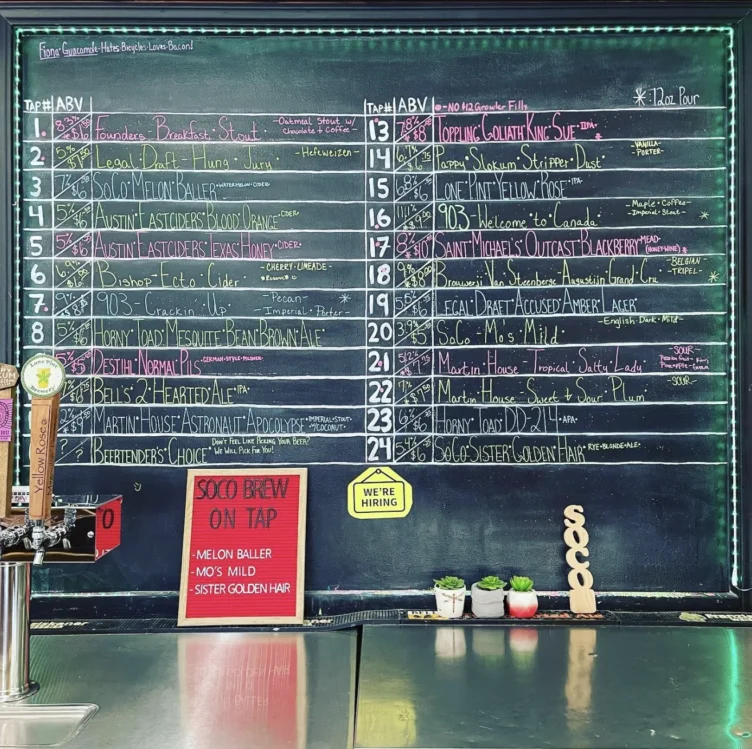 Fiona-Guacamole-Hates Bicycles-Loves-Bacon!
TAP# ABV
1. 8.3% Founders Breakfast Stout -Oatmeal Stout w/
Chocolate + Coffee-
2. 5% Legal Draft Hung Jury -Hefeweizen-
3 SoCo Melon Baller -WATERMELON-CIDER-
4 5% Austin Eastciders Blood Orange CIDER
5 5% $6 Austin Eastciders Texas Honey CIDER
6 Bishop Ecto Cider -CHERRY-LIMEADE-
7. 9% 903 Crackin' Up -Pecan-
Imperial Porter- *
8 5% Horny Toad Mesquite Bean Brown Ale
5% $5 Destihl Normal Pils -GERMAN-STYLE-PILSNER-
Bell's 2 Hearted Ale IPA
Martin House Astronaut Apocolypse -IMPERIAL-STOUT-
w/COCONUT-
? ? Beertender's Choice Don't Feel Like Picking Your Beer?
We Will Pick For You!
TAP# ABV -NO $12 Growler Fills *:12oz Pour
13 7.8% $8 Toppling Goliath King Sue IIPA
14 Pappy Slokum Stripper Dust -VANILLA-
PORTER-
15 Lone Pint Yellow Rose IPA
16 903 Welcome to Canada -Maple-Coffee-
-Imperial-Stout- *
17 8% $10 Saint Michael's Outcast Blackberry MEAD-
(HONEY WINE) *
18 9% Brouwerij Van Steenberge Augustijn Grand Cru -BELGIAN
-TRIPEL- *
19 Legal Draft Accused Amber Lager
20 3.9% $5 SoCo Mo's Mild -English-Dark-Mild-
21 Martin House Tropical Salty Lady -SOUR-
22 Martin House Sweet & Sour Plum -SOUR-
23 6% Horny Toad DD-214 APA
24 5.4% $6 SoCo Sister Golden Hair RYE-BLONDE-ALE
WE'RE
HIRING
SOCO BREW
ON TAP
-MELON BALLER
-MO'S MILD
-SISTER GOLDEN HAIR
SOCO
Yellow Rose